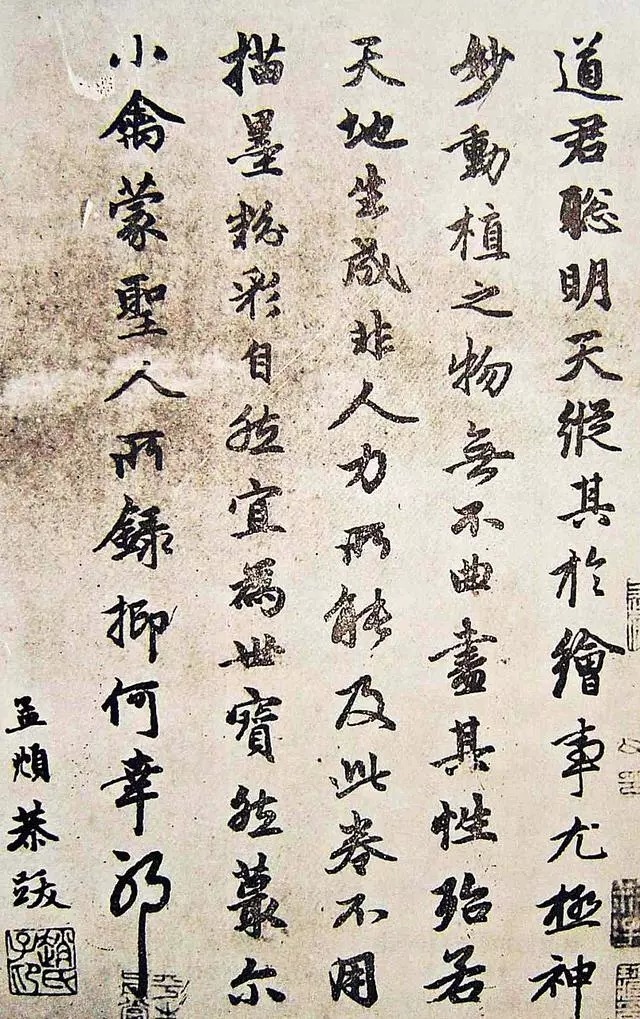 道君聪明天縱其於繪事尤極神
妙動植之物無不曲盡其性殆若
天地生成非人力所能及此卷不用
描墨粉彩自然宜為世寳然蕞尔
小禽蒙聖人所録抑何幸耶
孟頫恭跋
趙氏子昂